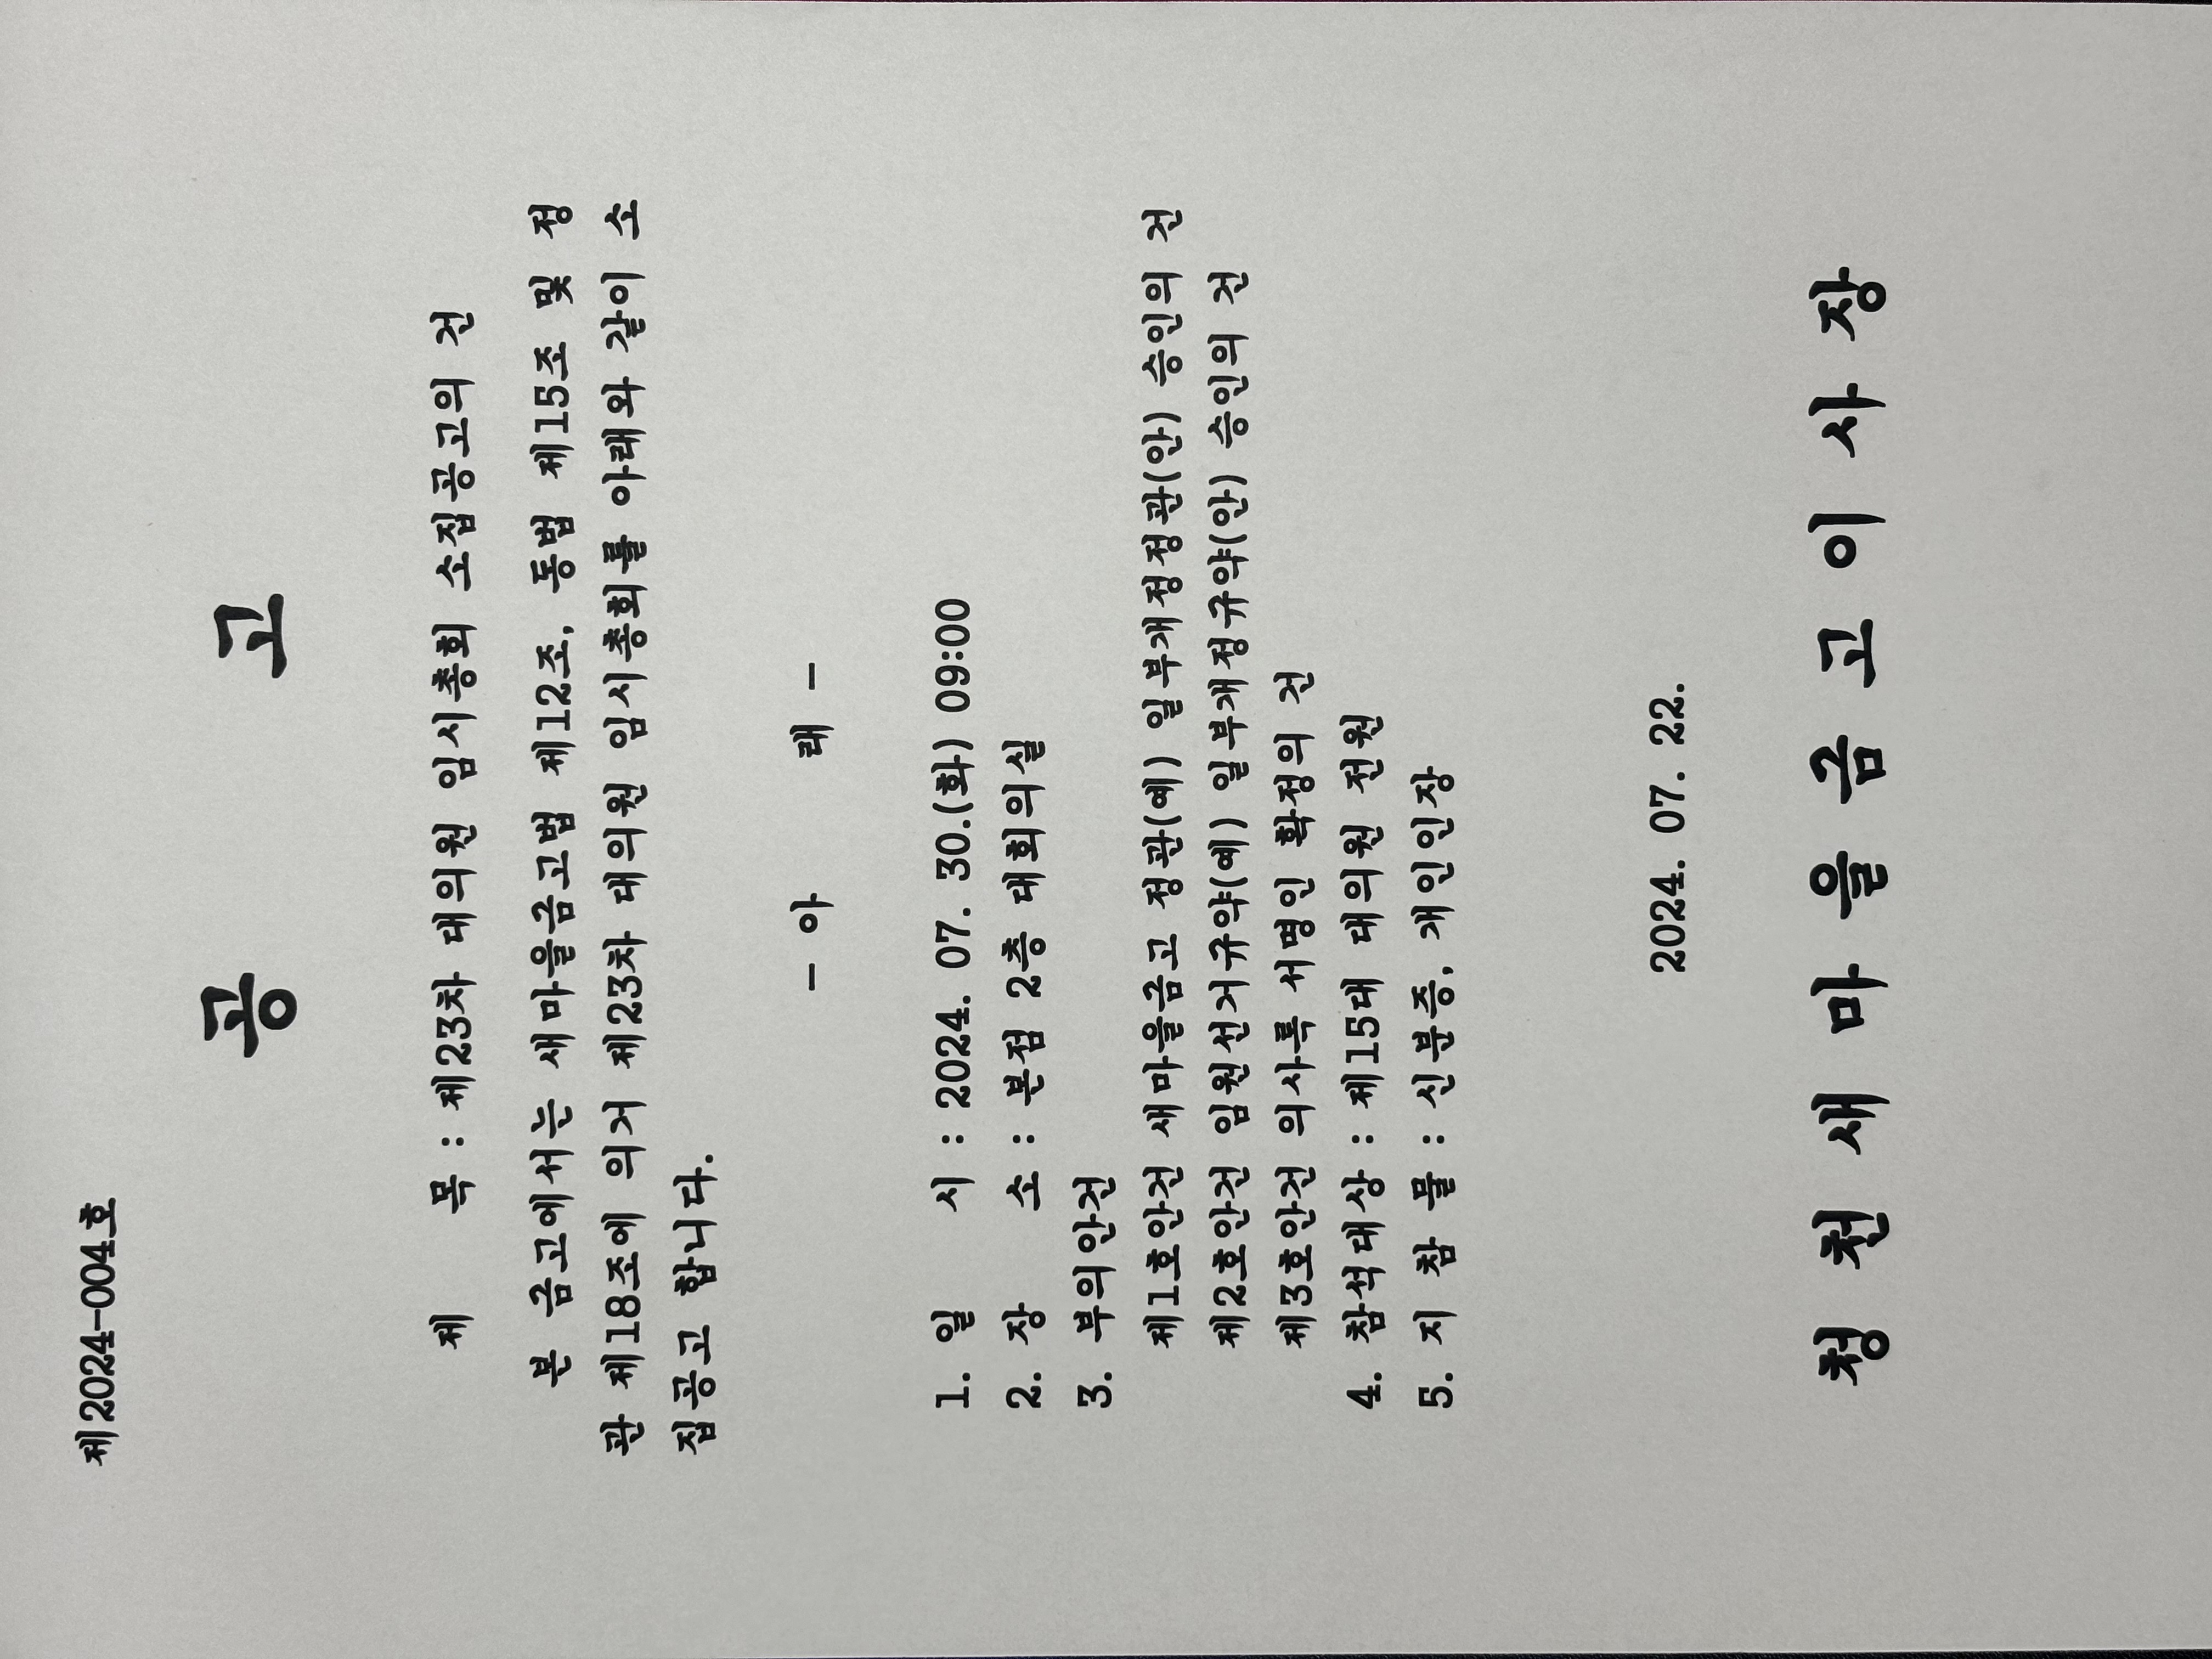 제2024-004호
공 고
제 목 : 제23차 대의원 임시총회 소집공고의 건
본 금고에서는 새마을금고법 제12조, 동법 제15조 및 정
관 제18조에 의거 제23차 대의원 임시총회를 아래와 같이 소
집공고 합니다.
- 아 래 -
1. 일 시 : 2024. 07. 30.(화) 09:00
2. 장 소 : 본점 2층 대회의실
3. 부의안건
제1호안건 새마을금고 정관(예) 일부개정정관(안) 승인의 건
제2호안건 임원선거규약(예) 일부개정규약(안) 승인의 건
제3호안건 의사록 서명인 확정의 건
4. 참석대상 : 제15대 대의원 전원
5. 지 참 물 : 신분증, 개인인장
2024. 07. 22.
청 천 새 마 을 금 고 이 사 장